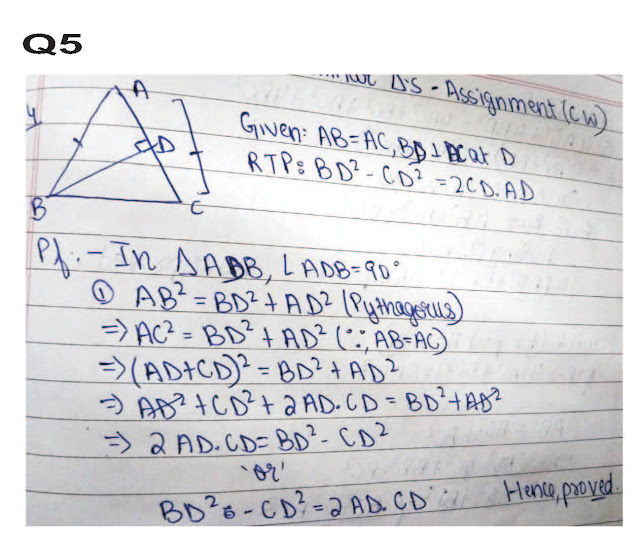 Q5
Δ'S - Assignment (CW)
4
A
D
B
C
Given: AB=AC, BD ⊥ AC at D
RTP: BD² - CD² = 2CD.AD
Pf:- In ΔADB, ∠ADB=90°
① AB² = BD² + AD² (Pythagorus)
⇒ AC² = BD² + AD² (∵, AB=AC)
⇒ (AD+CD)² = BD² + AD²
⇒ AD² + CD² + 2AD.CD = BD² + AD²
⇒ 2 AD.CD = BD² - CD²
'or'
BD² - CD² = 2AD.CD Hence, proved.